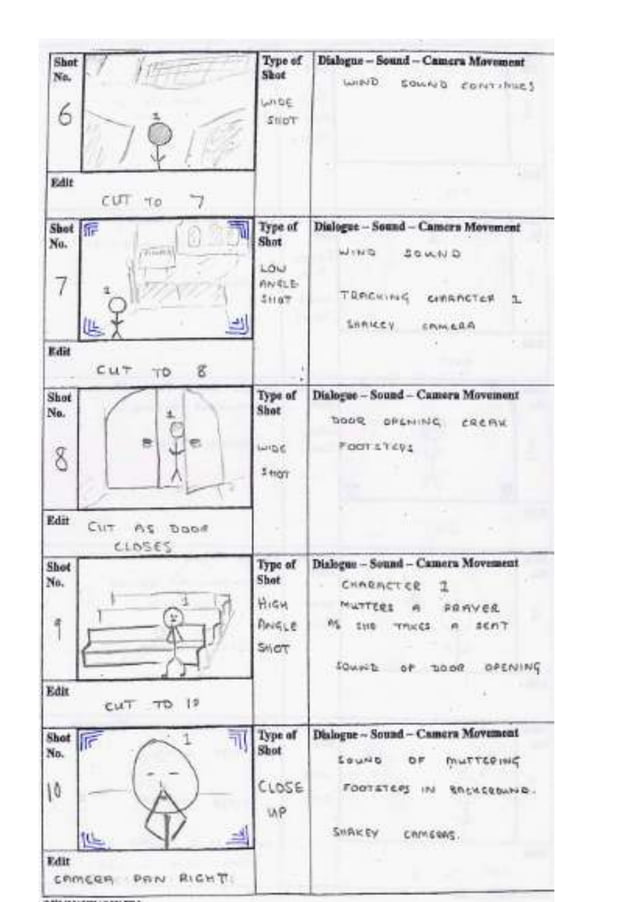 Shot
No.
6
1
Type of
Shot
WIDE
SHOT
Dialogue – Sound – Camera Movement
WIND SOUND CONTINUES
Edit
CUT TO 7
Shot
No.
7
1
Type of
Shot
LOW
ANGLE
SHOT
Dialogue – Sound – Camera Movement
WIND SOUND
TRACKING CHARACTER 1
SHAKEY CAMERA
Edit
CUT TO 8
Shot
No.
8
1
Type of
Shot
WIDE
SHOT
Dialogue – Sound – Camera Movement
DOOR OPENING CREAK
FOOTSTEPS
Edit
CUT AS DOOR
CLOSES
Shot
No.
9
1
Type of
Shot
HIGH
ANGLE
SHOT
Dialogue – Sound – Camera Movement
CHARACTER 1
MUTTERS A PRAYER
AS SHE TAKES A SEAT
SOUND OF DOOR OPENING
Edit
CUT TO 10
Shot
No.
10
1
Type of
Shot
CLOSE
UP
Dialogue – Sound – Camera Movement
SOUND OF MUTTERING
FOOTSTEPS IN BACKGROUND.
SHAKEY CAMERAS.
Edit
CAMERA PAN RIGHT.